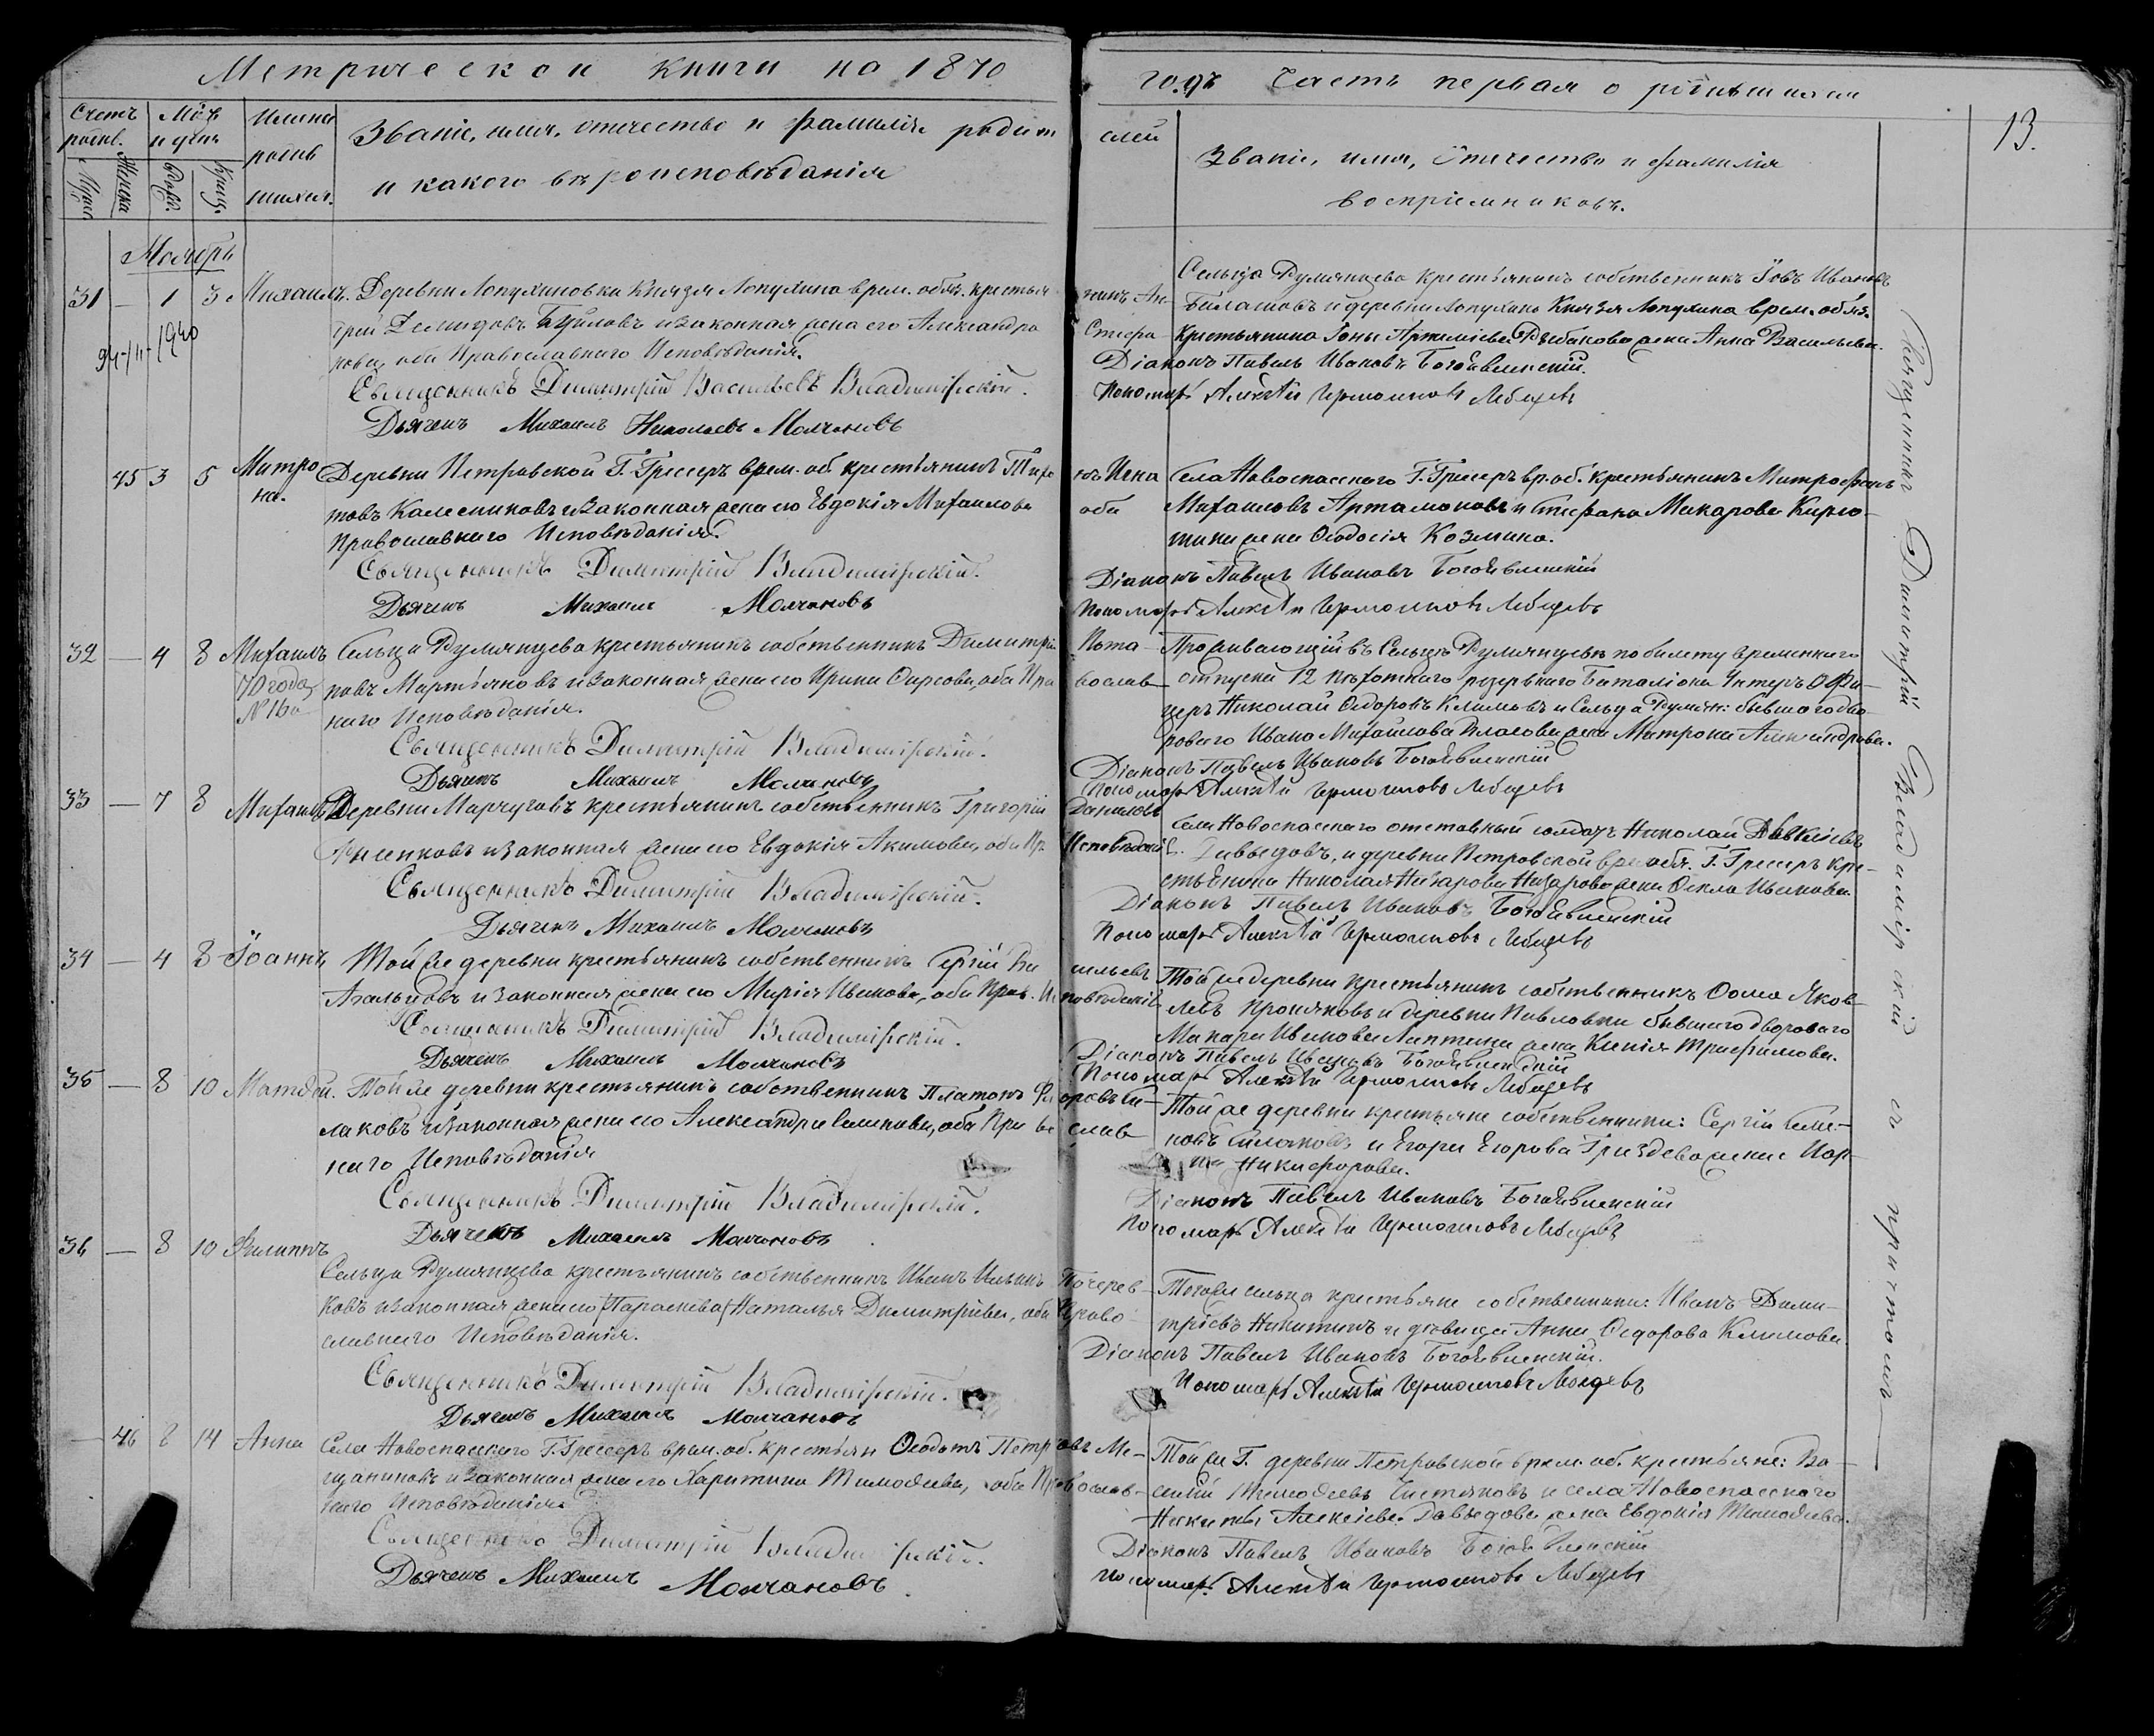 Метрической книги на 1870
годъ Часть первая о родившихся
13.
Счетъ родив.
Мѣс. и день
Имена родив шихся.
Званіе, имя, отчество и фамилія родит
и какого вѣроисповѣданія
елей
Званіе, имя, отчество и фамилія
воспріемниковъ.
Мужс.
Женска
Рожд.
Крещ.
Ноябрь
31 — 1 3 Михаилъ. Деревни Лопухиновки Князя Лопухина врем. обяз. крестья
нинъ Ан-
дрей Демидовъ законная жена его Александра
Стефа
нова, оба Православнаго Исповѣданія.
Священникъ Димитрій Васильевъ Владимірскій.
Дьячекъ Михаилъ Николаевъ Молчановъ
Сельца Румянцева крестьянинъ собственникъ Іовъ Ивановъ
Балашовъ и деревни Лопухино Князя Лопухина врем. обяз.
крестьянина Іоны Артеміева Рыбакова жена Анна Васильева.
Діаконъ Павелъ Ивановъ Богоявленскій.
Пономарь Алексѣй Ермогеновъ Лебедевъ
45 3 5 Матро на.
Деревни Петровской Г. Грессеръ врем. об. крестьянинъ
товъ Калесниковъ и законная жена его Евдокія Михаилова
оба
Православнаго Исповѣданія.
Священникъ Димитрій Владимірскій.
Дьячекъ Михаилъ Молчановъ
Села Новоспасскаго Г. Грессеръ вр. об. крестьянинъ Митрофанъ
Михаиловъ Артамоновъ и Стефана Макарова Кирю-
шина жена Ѳеодосія Козмина.
Діаконъ Павелъ Ивановъ Богоявленскій
Пономарь Алексѣй Ермогеновъ Лебедевъ
32 — 4 8 Михаилъ Сельца Румянцева крестьянинъ собственникъ Димитрій
Пота
70 года
N 16
повъ Мартьяновъ и законная жена его Ирина Фирсова, оба Пра
вослав
наго Исповѣданія.
Священникъ Димитрій Владимірскій.
Дьячекъ Михаилъ Молчановъ
Проживающій въ Сельцѣ Румянцевѣ по билету временнаго
отпуска 12 пѣхотнаго резервнаго Баталіона Унтеръ Офи-
церъ Николай Ѳедоровъ Климовъ и Сельца Румян: бывшаго дво-
роваго Ивана Михайлова Власова жена Матрона Александрова.
Діаконъ Павелъ Ивановъ Богоявленскій
Пономарь Алексѣй Ермогеновъ Лебедевъ
33 — 7 8 Михаилъ Деревни Марчуговъ крестьянинъ собственникъ Григорій
Даниловъ
и законная жена его Евдокія Акимова, оба Пр.
Исповѣданія.
Священникъ Димитрій Владимірскій.
Дьячекъ Михаилъ Молчановъ
Села Новоспасскаго отставный солдатъ Николай Алексіевъ
Давыдовъ, и деревни Петровской врем. обяз. Г. Грессеръ кре-
стьянина Николая Назарова Назарова жена Ѳекла Иванова.
Діаконъ Павелъ Ивановъ Богоявленскій
Пономарь Алексѣй Ермогеновъ Лебедевъ
34 — 4 8 Іоаннъ Той же деревни крестьянинъ собственникъ Сергій Ва
сильевъ
и законная жена его Марія Иванова, оба Прав. Ис
повѣданія
Священникъ Димитрій Владимірскій.
Дьячекъ Михаилъ Молчановъ
Той же деревни крестьянинъ собственникъ Ѳома Яков-
левъ и деревни Павловки бывшаго двороваго
Макара Иванова Лаптина жена Ксенія Трифонова.
Діаконъ Павелъ Ивановъ Богоявленскій
Пономарь Алексѣй Ермогеновъ Лебедевъ
35 — 8 10 Матѳей. Той же деревни крестьянинъ собственникъ Платонъ
лаковъ и законная жена его Александра Семенова, оба Пра во
слав
наго Исповѣданія
Священникъ Димитрій Владимірскій.
Дьячекъ Михаилъ Молчановъ
Той же деревни крестьяне собственники: Сергій Семе-
новъ и Егора Егорова жена Мар-
Никифорова.
Діаконъ Павелъ Ивановъ Богоявленскій
Пономарь Алексѣй Ермогеновъ Лебедевъ
36 — 8 10 Филиппъ
Сельца Румянцева крестьянинъ собственникъ Иванъ Ильинъ
Почерев
ковъ и законная жена его (Параскева) Наталья Димитріева, оба
Право
славнаго Исповѣданія.
Священникъ Димитрій Владимірскій.
Дьячекъ Михаилъ Молчановъ
Тогоже сельца крестьяне собственники: Иванъ Дими-
тріевъ Никитинъ и дѣвица Анна Ѳедорова Климова.
Діаконъ Павелъ Ивановъ Богоявленскій.
Пономарь Алексѣй Ермогеновъ Лебедевъ
— 46 8 14 Анна Села Новоспасскаго Г. Грессеръ врем. об. крестьян Ѳеодотъ Петровъ Ме-
щаниновъ и законная жена его Харитина Тимоѳеева, оба Православ-
наго Исповѣданія.
Священникъ Димитрій Владимірскій.
Дьячекъ Михаилъ Молчановъ.
Той же Г. деревни Петровской врем. об. крестьяне: Ва-
силій Тимоѳеевъ Чистяковъ и села Новоспасскаго
Никиты Алексіева Давыдова жена Евдокія Тимоѳеева.
Діаконъ Павелъ Ивановъ Богоявленскій
Пономарь Алексѣй Ермогеновъ Лебедевъ
Священникъ Димитрій Владимірскій съ причтомъ